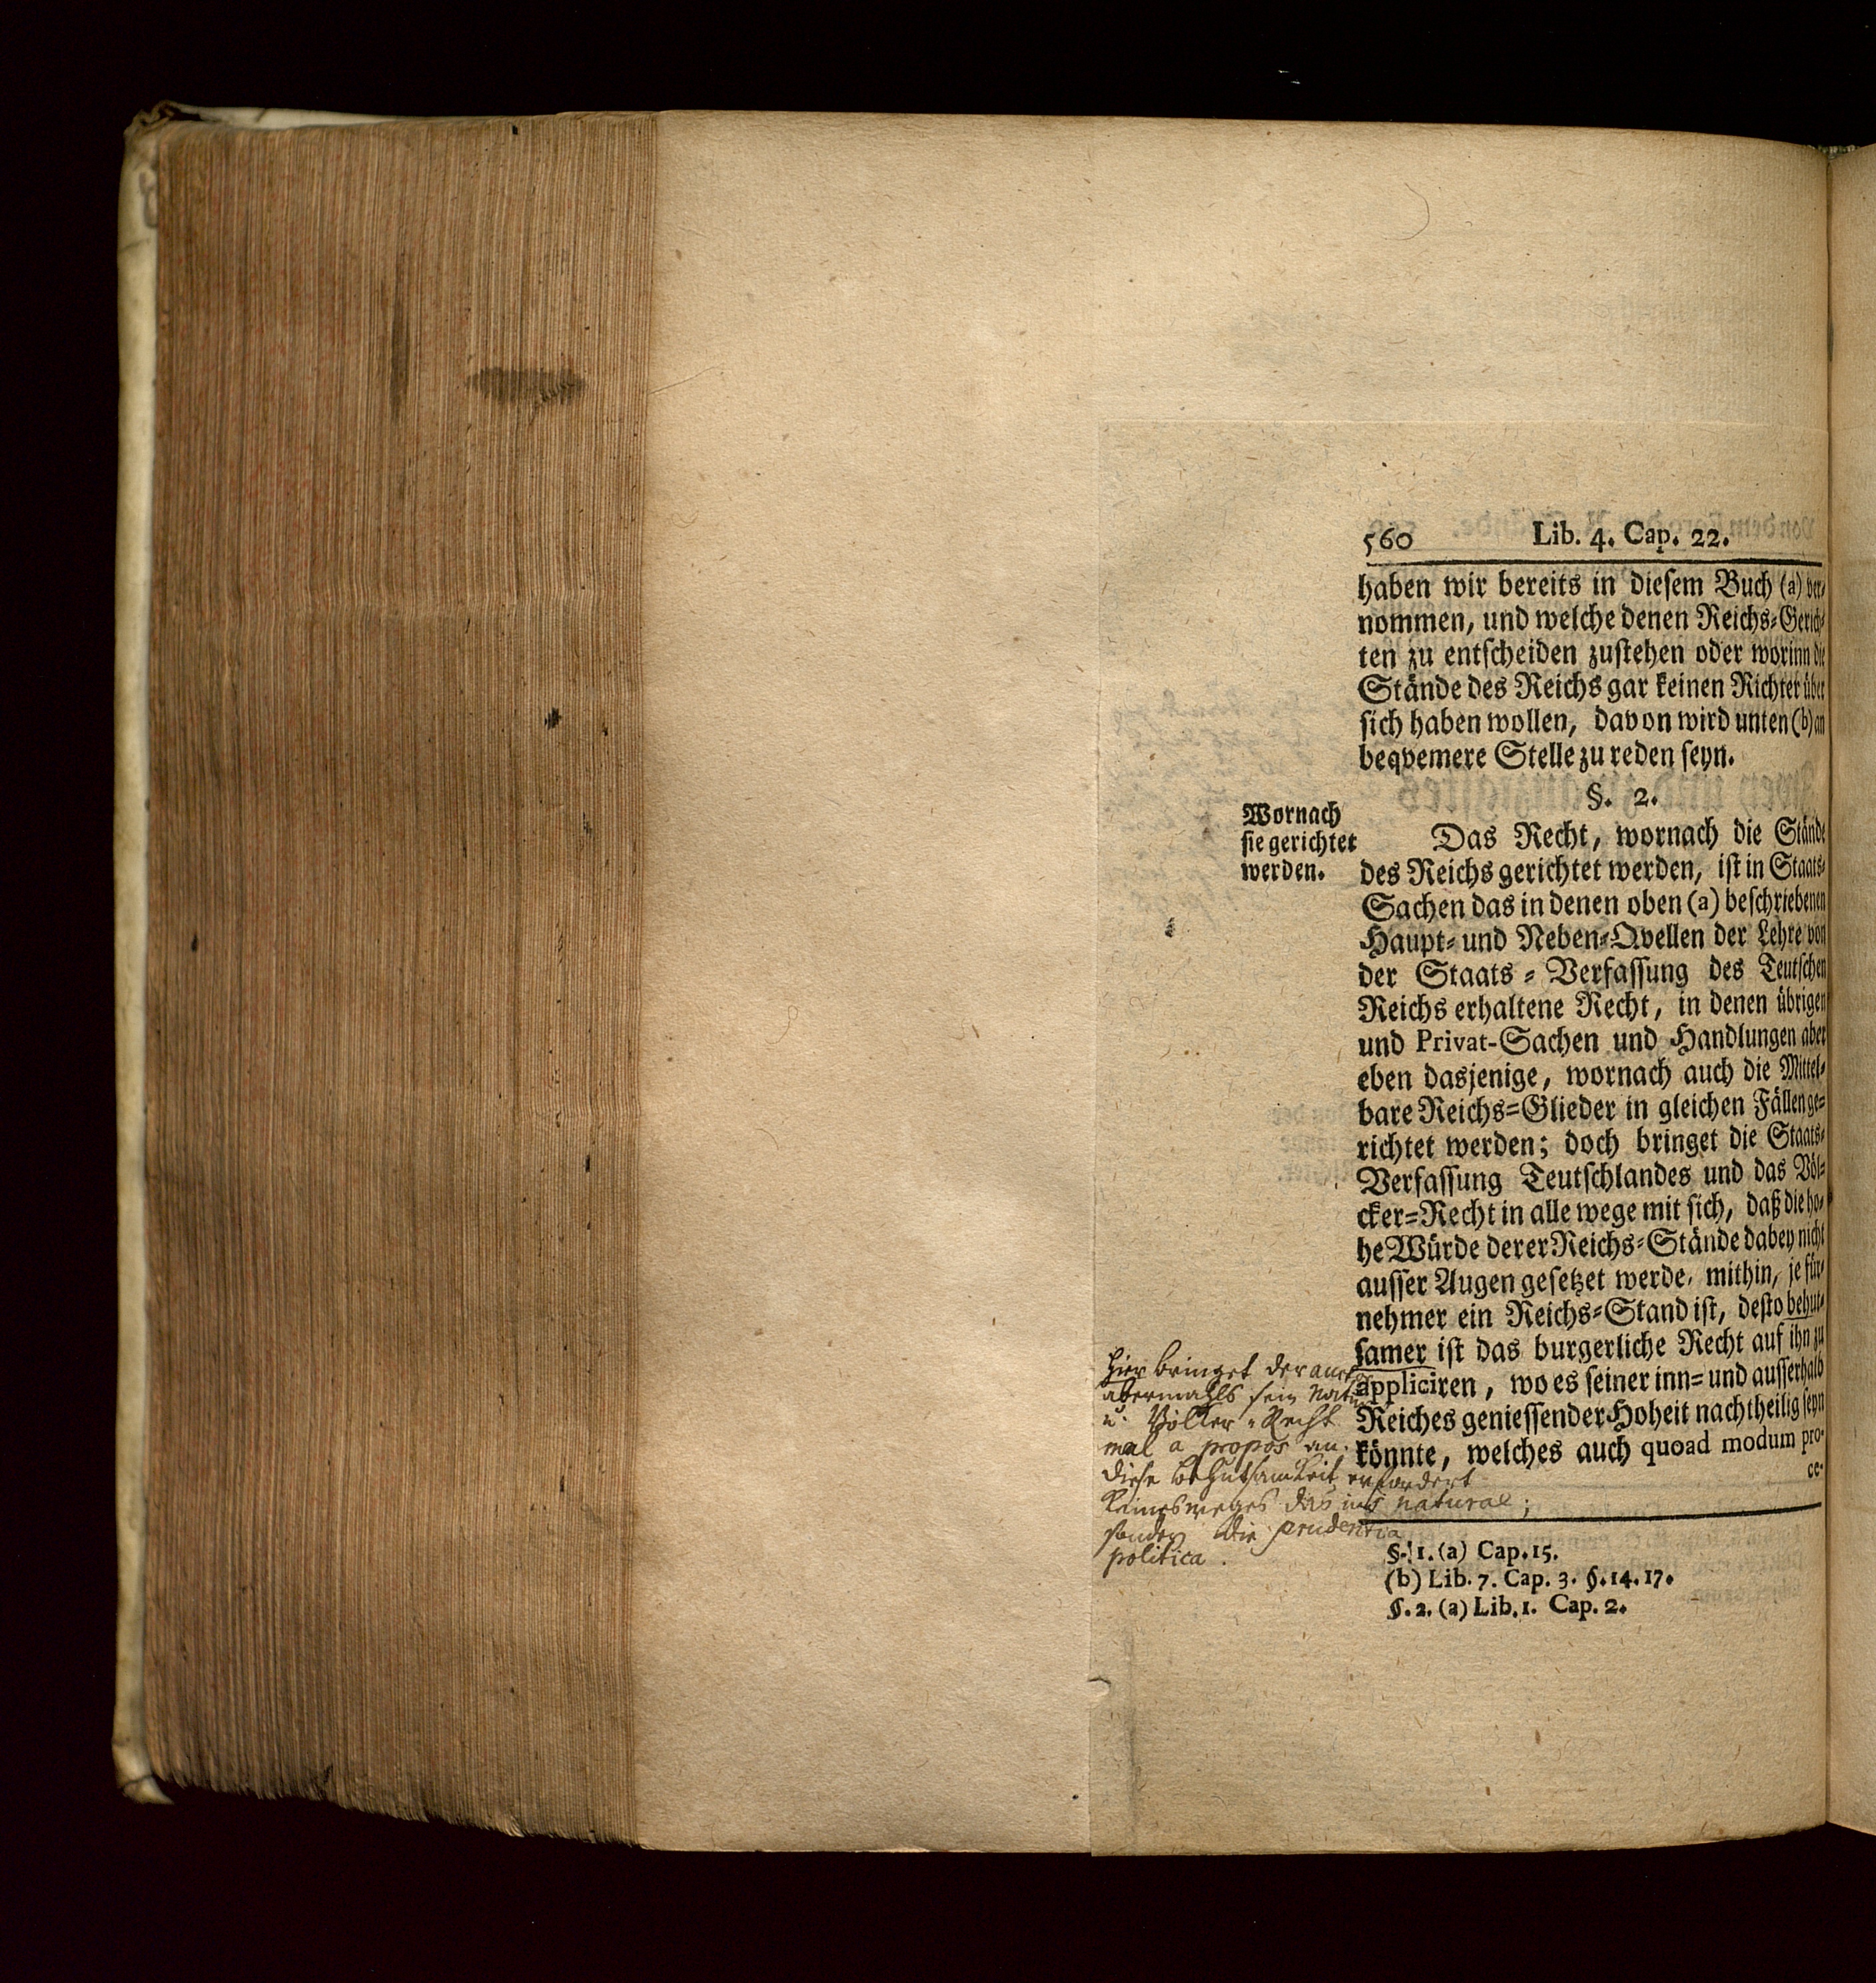 560 Lib. 4. Cap. 22.
haben wir bereits in diesem Buch (a) ver-
nommen, und welche denen Reichs-Gerich-
ten zu entscheiden zustehen oder worinn die
Stände des Reichs gar keinen Richter über
sich haben wollen, davon wird unten (b) an
beqvemere Stelle zu reden seyn.
§. 2.
Wornach
sie gerichtet
werden.
Das Recht, wornach die Stände
des Reichs gerichtet werden, ist in Staats-
Sachen das in denen oben (a) beschriebenen
Haupt- und Neben-Qvellen der Lehre von
der Staats-Verfassung des Teutschen
Reichs erhaltene Recht, in denen übrigen
und Privat-Sachen und Handlungen aber
eben dasjenige, wornach auch die Mittel-
bare Reichs-Glieder in gleichen Fällen ge-
richtet werden; doch bringet die Staats-
Verfassung Teutschlandes und das Völ-
cker-Recht in alle wege mit sich, daß die ho-
he Würde derer Reichs-Stände dabey nicht
ausser Augen gesetzet werde, mithin, je für-
nehmer ein Reichs-Stand ist, desto behut-
samer ist das burgerliche Recht auf ihn zu
appliciren, wo es seiner inn- und ausserhalb
Reiches geniessender Hoheit nachtheilig seyn
könnte, welches auch quoad modum pro-
ce-
hier bringet der auct
abermahls sein Natur
u. Völker-Recht
mal a propos an.
diese behutsamkeit erfordert
keinesweges das ius naturae;
sondern die prudentia
politica.
§. 1. (a) Cap. 15.
(b) Lib. 7. Cap. 3. §. 14. 17.
§. 2. (a) Lib. 1. Cap. 2.